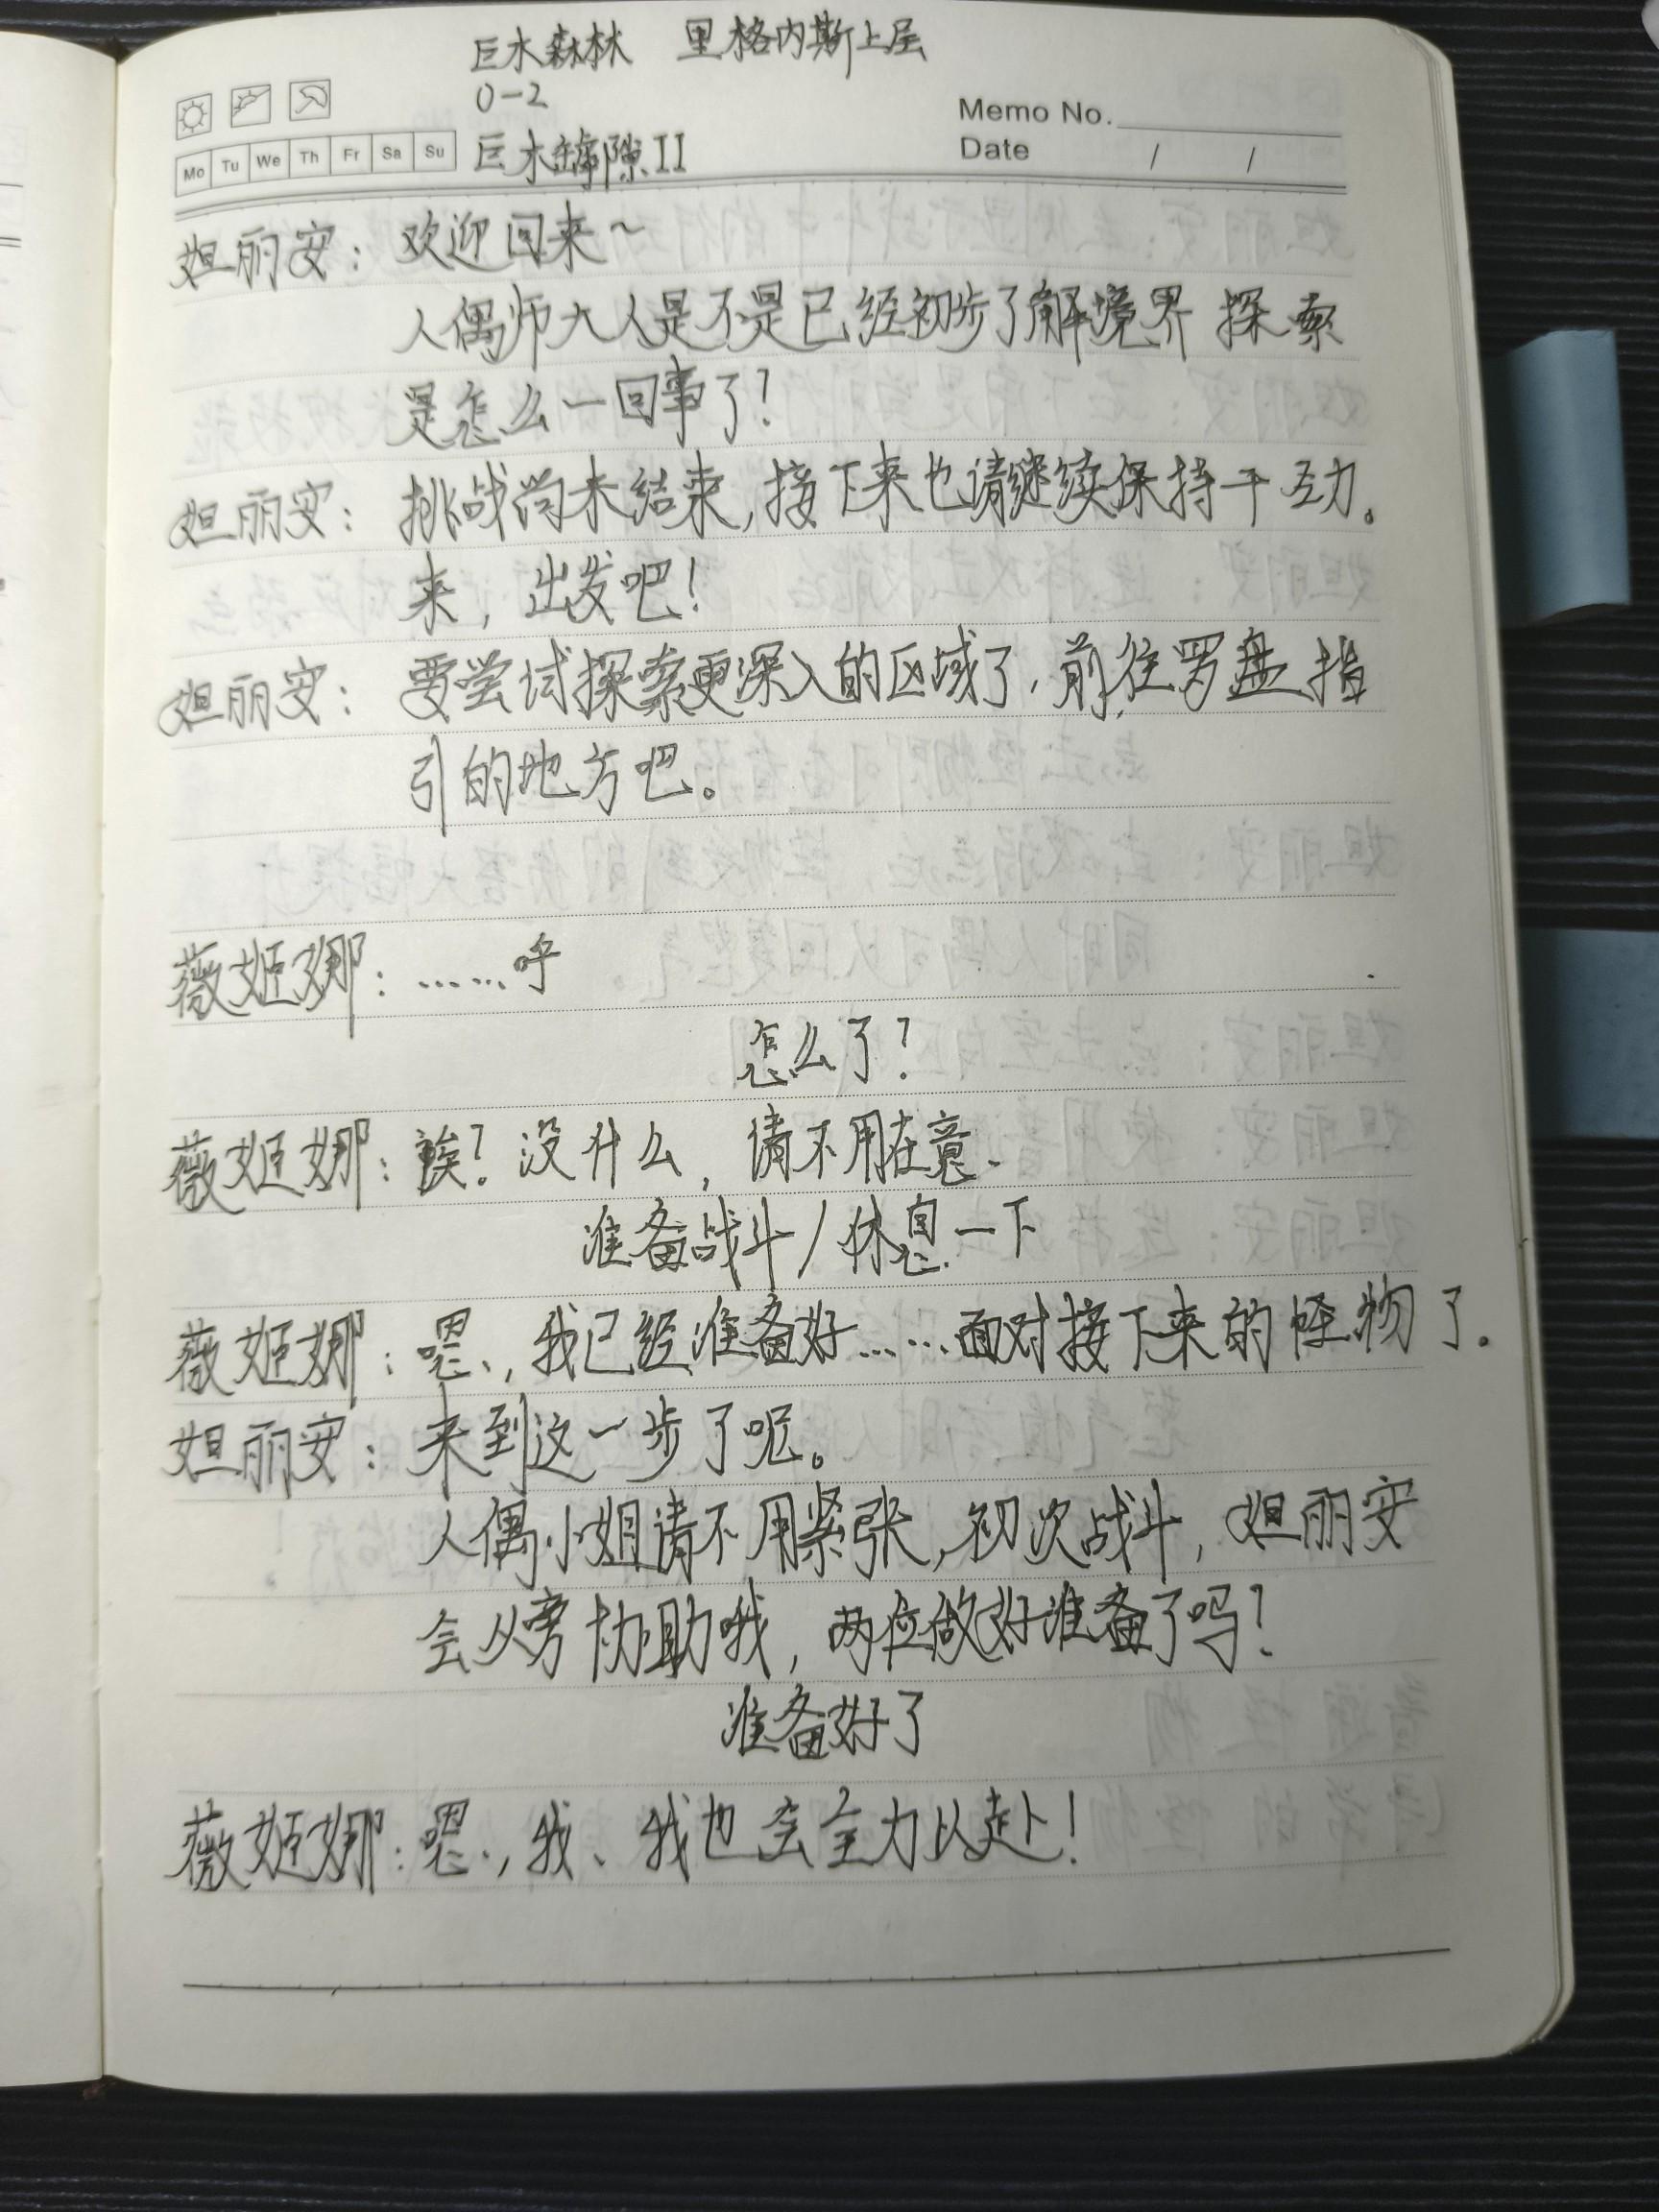 巨木森林 里格内斯上层
0-2
Memo No.
Date / /
Mo Tu We Th Fr Sa Su
巨木罅隙II
妲丽安：欢迎回来~
人偶师大人是不是已经初步了解境界探索
是怎么一回事了?
妲丽安：挑战尚未结束,接下来也请继续保持干劲。
来,出发吧!
妲丽安：要尝试探索更深入的区域了,前往罗盘指
引的地方吧。
薇姬娜：……呼
怎么了?
薇姬娜：誒?没什么,请不用在意.
准备战斗/休息一下
薇姬娜：嗯,我已经准备好……面对接下来的怪物了.
妲丽安：来到这一步了呢。
人偶小姐请不用紧张,初次战斗,妲丽安
会从旁协助哦,两位做好准备了吗?
准备好了
薇姬娜：嗯,我、我也会全力以赴!